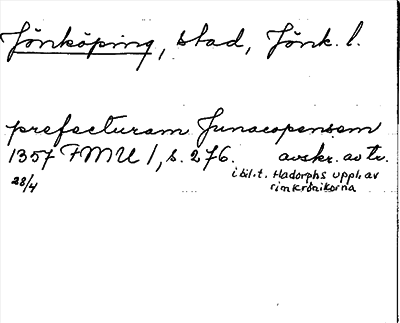 Jönköping, stad, Jönk. l.
prefecturam Junacopensem
1357 FMU 1, s. 276. avskr. av tr.
28/4 i bil. t. Hadorphs uppl. av
rimkrönikorna